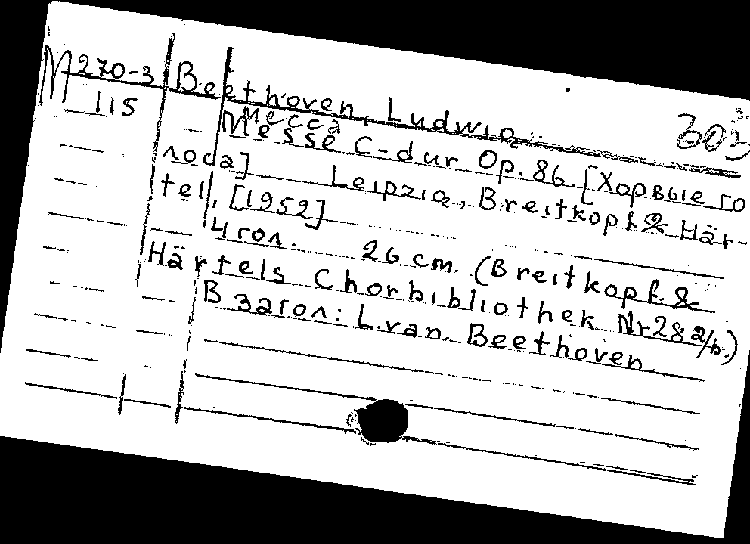 М 270-3 Beethoven, Ludwig
115 Месса
Messe C-dur Op. 86. [Хоровые го
лоса] Leipzig, Breitkopf & Här-
tel, [1952]
4 гол. 26 cm. (Breitkopf &
Härtels Chorbibliothek Nr 28 a/b.)
В загол: L. van. Beethoven